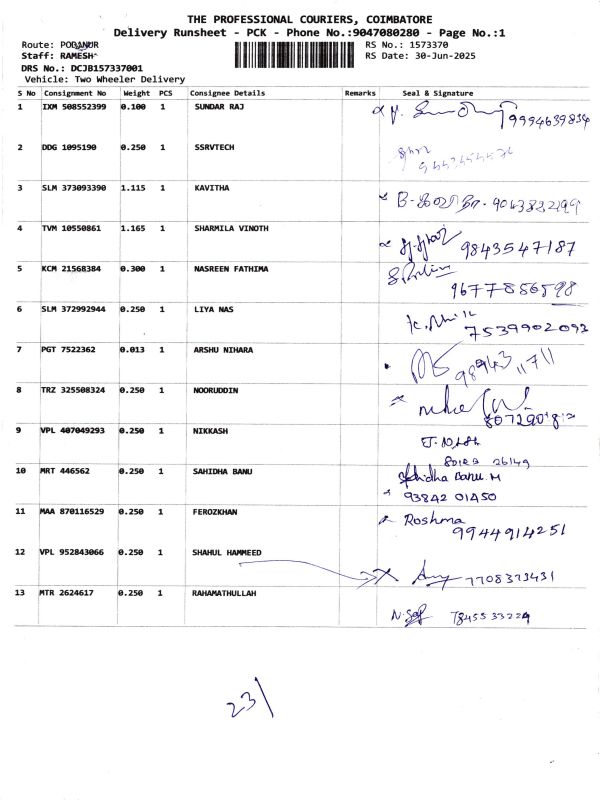 THE PROFESSIONAL COURIERS, COIMBATORE
Delivery Runsheet - PCK - Phone No.:9047080280 - Page No.:1
Route: PODANUR RS No.: 1573370
Staff: RAMESH RS Date: 30-Jun-2025
DRS No.: DCJB157337001
Vehicle: Two Wheeler Delivery
S No Consignment No Weight PCS Consignee Details Remarks Seal & Signature
1 IXM 508552399 0.100 1 SUNDAR RAJ 9994639834
2 DDG 1095190 0.250 1 SSRVTECH
3 SLM 373093390 1.115 1 KAVITHA 9043822199
4 TVM 10550861 1.165 1 SHARMILA VINOTH 9843547187
5 KCM 21568384 0.300 1 NASREEN FATHIMA 9677856598
6 SLM 372992944 0.250 1 LIYA NAS 7539902093
7 PGT 7522362 0.013 1 ARSHU NIHARA 98943 11711
8 TRZ 325508324 0.250 1 NOORUDDIN
9 VPL 407049293 0.250 1 NIKKASH
10 MRT 446562 0.250 1 SAHIDHA BANU Sahidha Banu. M
93842 01450
11 MAA 870116529 0.250 1 FEROZKHAN Roshma
9944914251
12 VPL 952843066 0.250 1 SHAHUL HAMMEED 7708373431
13 MTR 2624617 0.250 1 RAHAMATHULLAH 7845533229
23